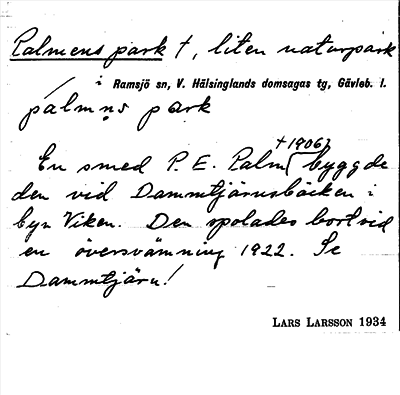 Palmens park †, liten naturpark
i Ramsjö sn, V. Hälsinglands domsagas tg, Gävleb. l.
pálmns park
†1906?
En smed P. E. Palm [ byggde
den vid Dammtjärnsbäcken i
byn Viken. Den spolades bort vid
en översvämning 1922. Se
Dammtjärn!
LARS LARSSON 1934